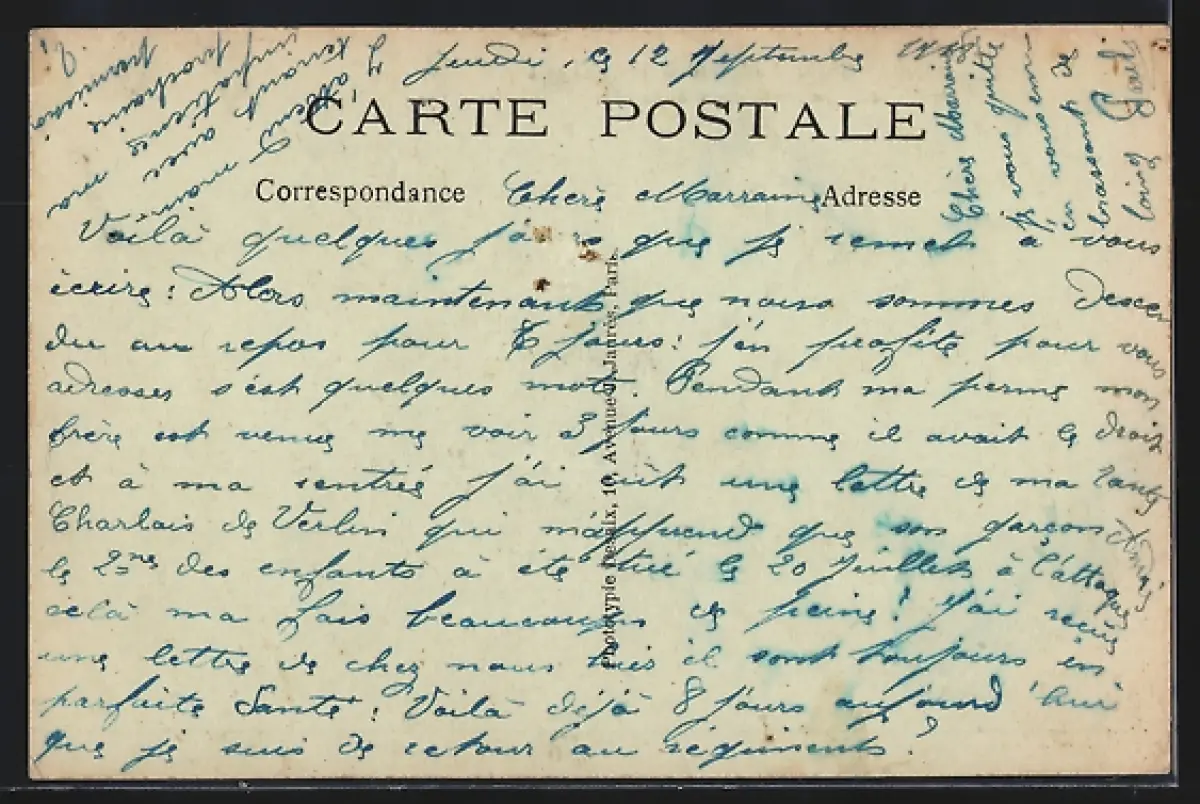 Jeudi, le 12 Septembre 1918
CARTE POSTALE
Correspondance
Adresse
Chère Marraine
Voilà quelques jours que je remet à vous
écrire: Alors maintenant que nous sommes descen
du au repos pour 8 jours: j'en profite pour vous
adresses s'est quelques mots. Pendant ma perme mon
frère est venue me voir 3 jours comme il avait le droit
et à ma rentrée j'ai eût une lettre de ma tante
Charlais de Verlin qui m'apprend que son garçon André
le 2me des enfants à été tué le 20 Juillet à l'attaque
celà ma fais beaucoup de peine! J'ai reçue
une lettre de chez nous hier il sont toujours en
parfaite Santé: Voilà déjà 8 jours aujourd'hui
que je suis de retour au régiments.
J'attend maintenant avec
impatience ma
prochaine
permission
Chère Marraine
je vous quitte
en vous
embrassant de
loing Paul
Phototypie 10, Avenue J. Jaurès, Paris